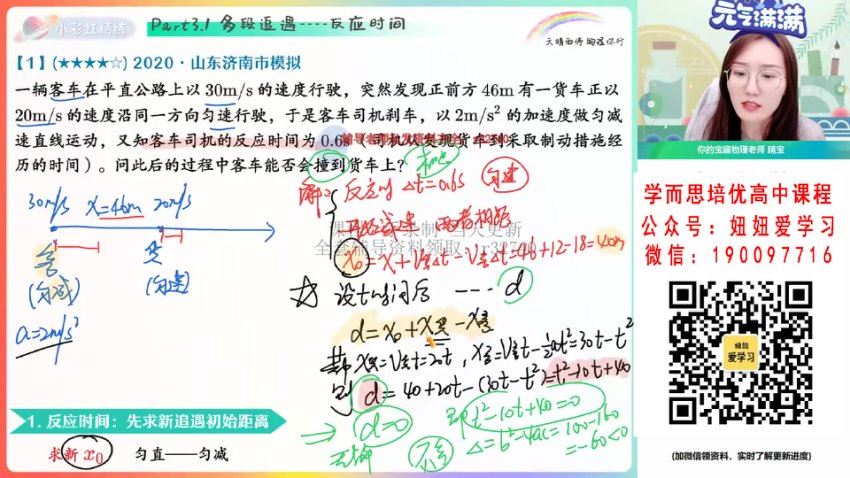 小彩虹精练
Part3.1 多段追遇----反应时间
天晴雨停 瞬遇你我
【1】(★★★★☆) 2020·山东济南市模拟
一辆客车在平直公路上以 30m/s 的速度行驶，突然发现正前方 46m 有一货车正以
20m/s 的速度沿同一方向匀速行驶，于是客车司机刹车，以 2m/s² 的加速度做匀减
速直线运动，又知客车司机的反应时间为 0.6s（司机从发现货车到采取制动措施经
历的时间）。问此后的过程中客车能否会撞到货车上？
30m/s x=46m 20m/s
客 货
(匀减) (匀速)
a=2m/s²
解：反应时 Δt=0.6s 匀速
开始减速 两者相距
x₀=x+V货Δt-V客Δt=46+12-18=40m
设t时间后 ---- d
d=x₀+x货-x客
其中 x货=V货t=20t, x客=V客t-½at²=30t-t²
则 d=40+20t-(30t-t²)=t²-10t+40
⇒ d=0 即 t²-10t+40=0
无解 不会 Δ=b²-4ac=100-160
=-60<0
1. 反应时间：先求新追遇初始距离
求新 x₀ 匀直——匀减
元气满满
你的宝藏物理老师 晴宝
学而思培优高中课程
公众号：妞妞爱学习
微信：190097716
妞妞
爱学习
(加微信领资料，实时了解更新进度)